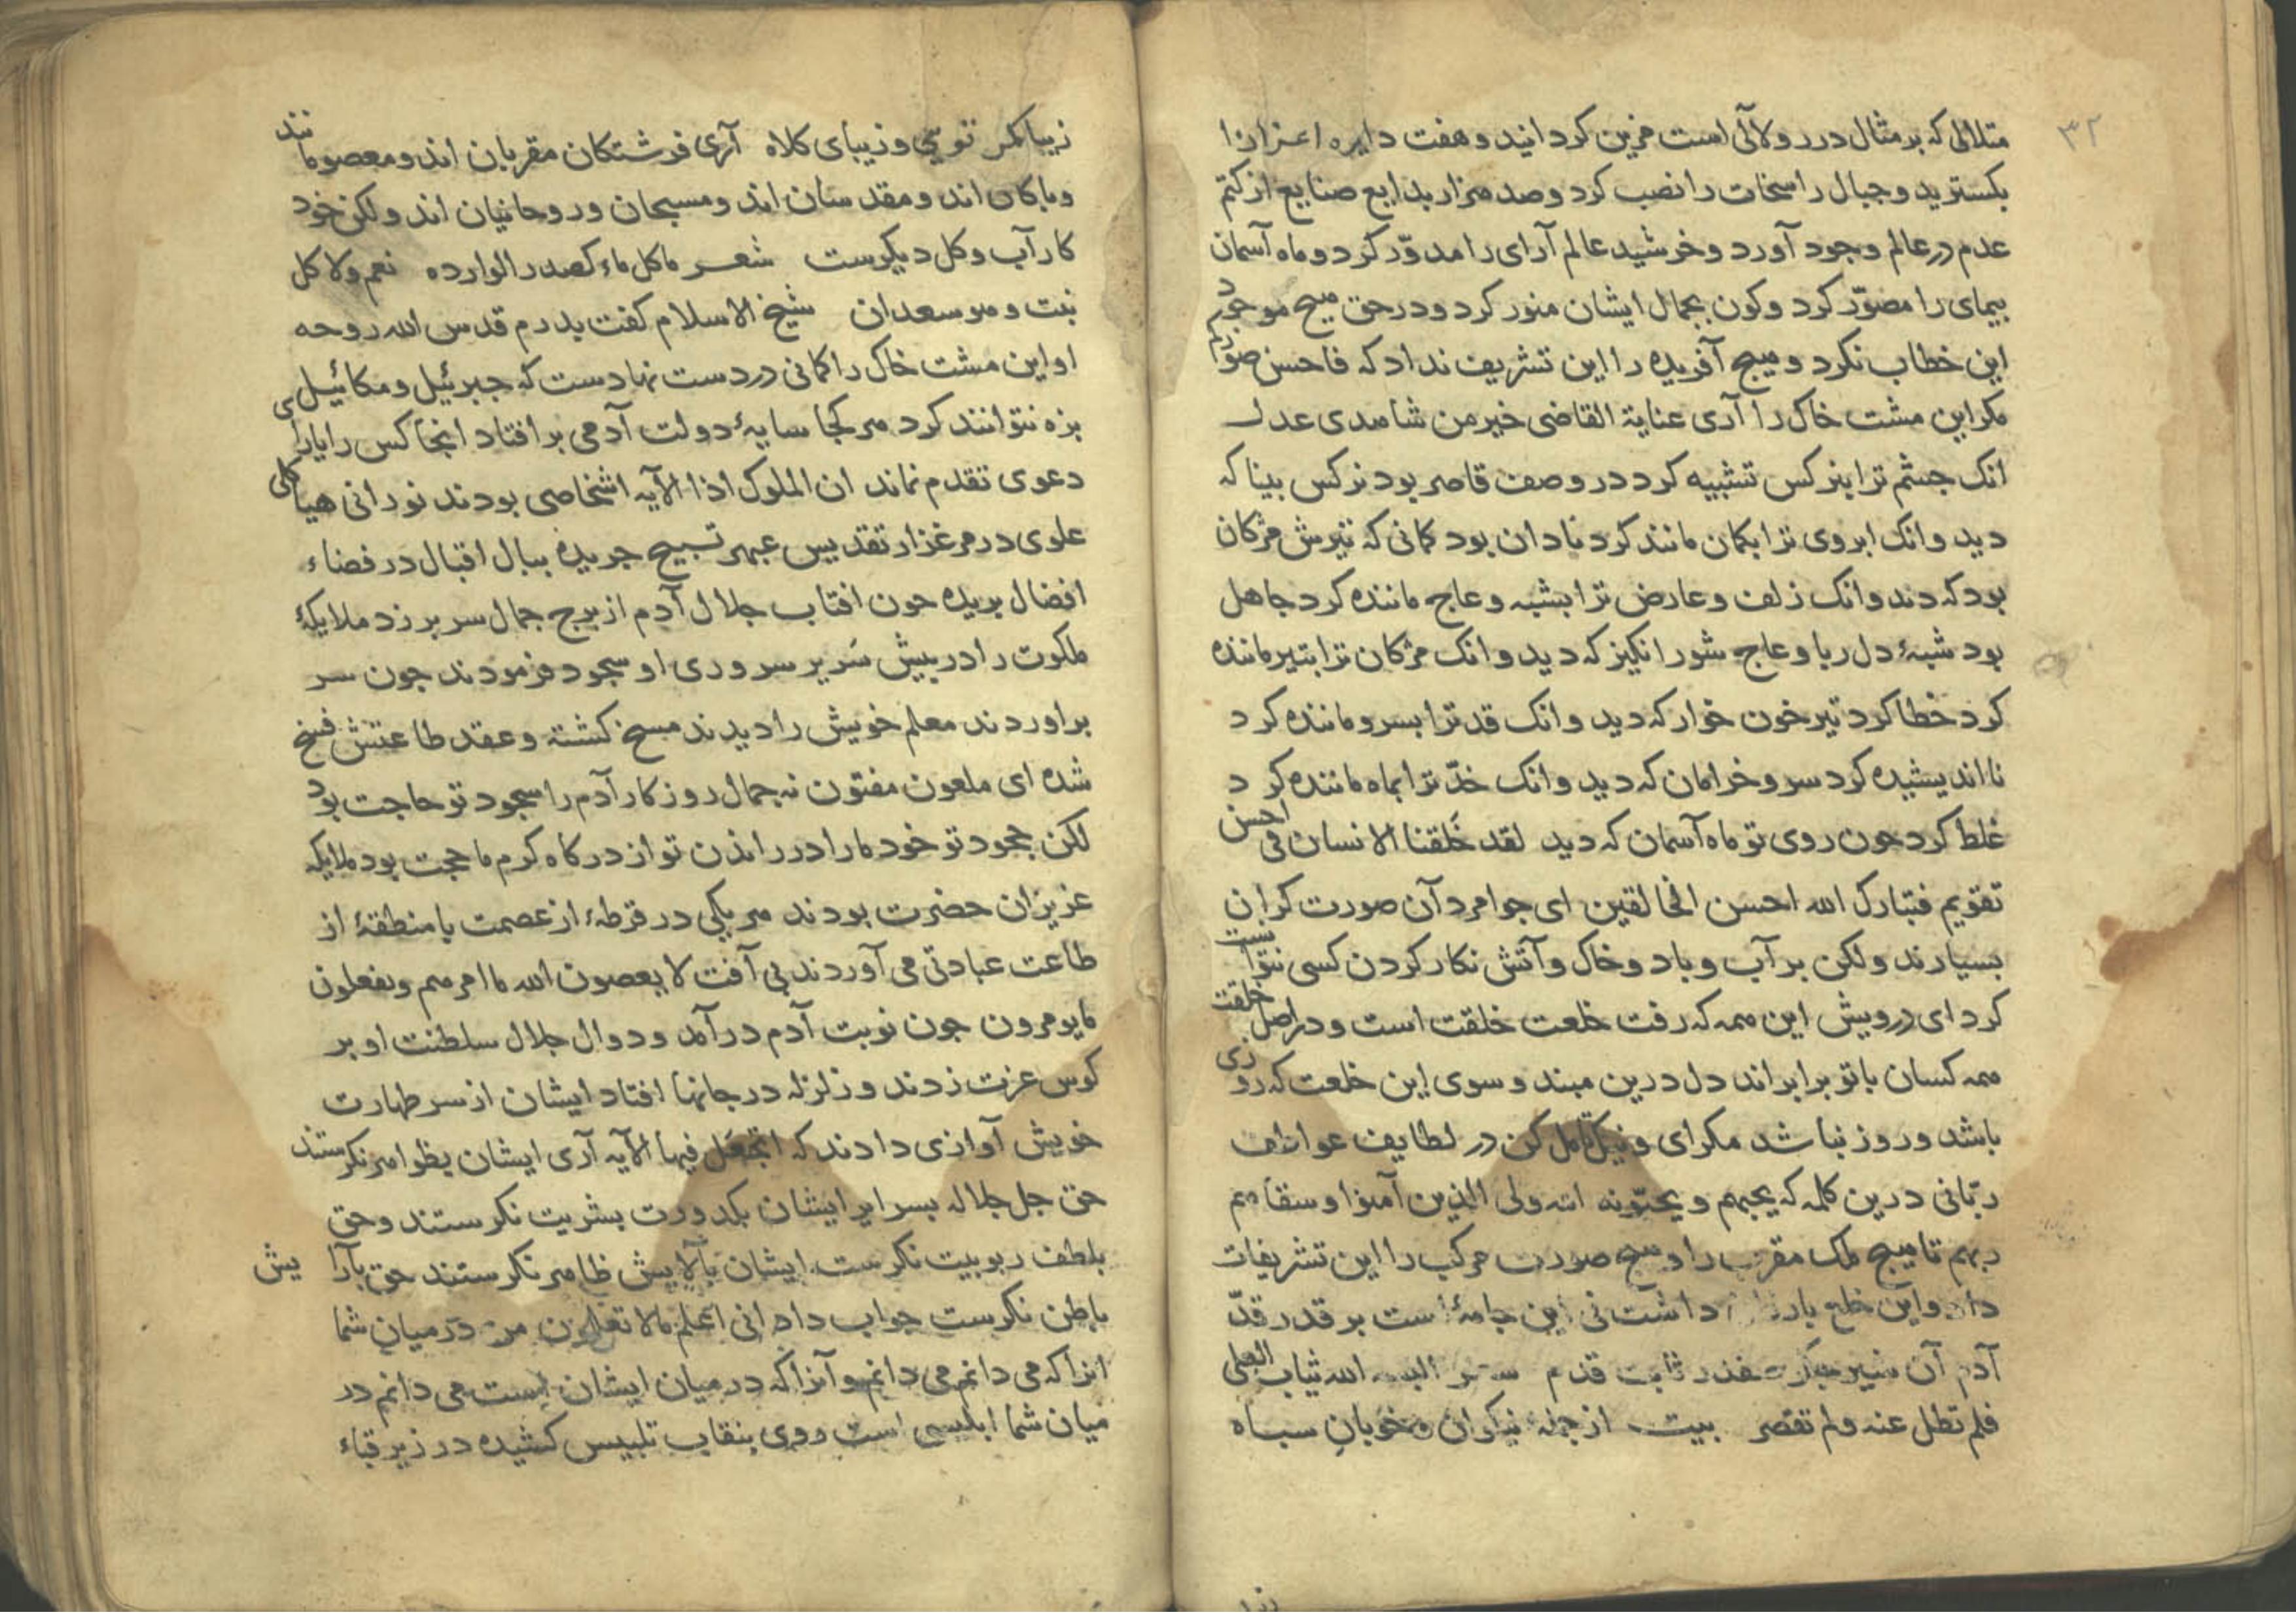 ۳۲
متلالی که بر مثال درر ولآلی است مزین کردانید و هفت دایره اعزازا
بکسترید و جبال راسخات را نصب کرد و صد هزار بدایع صنایع از کتم
عدم در عالم وجود آورد و خرشید عالم آرای را مدوّر کرد و ماه آسمان
بیمای را مصوّر کرد و کون بجمال ایشان منور کرد و در حق هیچ موجود
این خطاب نکرد و هیچ آفریده را این تشریف نداد که فاحسن صورکم
مکر این مشت خاک را آری عنایة القاضی خیر من شاهدی عدل
انک جشم ترا بنرکس تشبیه کرد در وصف قاصر بود نرکس بینا که
دید وانک ابروی ترا بکمان مانند کرد نادان بود کمانی که تیرش مژکان
بود که دید وانک زلف و عارض ترا بشبه و عاج ماننده کرد جاهل
بود شبهٔ دل ربا و عاج شور انکیز که دید وانک مژکان ترا بتیر ماننده
کرد خطا کرد تیر خون خوار که دید وانک قد ترا بسرو ماننده کرد
نااندیشیده کرد سرو خرامان که دید وانک خدّ ترا بماه ماننده کرد
غلط کرد جون روی تو ماه آسمان که دید لقد خَلقنا الانسان فی احسن
تقویم فتبارک الله احسن الخالقین ای جوامرد آن صورت کران
بسیارند ولکن بر آب و باد و خاک و آتش نکار کردن کسی نتوانست
کرد ای درویش این همه که رفت خلعت خلقت است و در اصل خلقت
همه کسان با تو برابراند دل درین مبند و سوی این خلعت که روزی
باشد و روز نباشد مکرای و نیک تامل کن در لطایف عواطف
ربّانی درین کلمه که یحبهم و یحبّونه الله ولی الذین آمنوا وسقاهم
ربهم تا هیچ ملک مقرب را و هیچ صورت مرکب را این تشریفات
داد و این خلع داشت نی این جامهٔ است بر قدر قدّ
آدم آن ثابت قدم الله ثیاب العلی
فلم تطل عنه ولم تقصر بیت از جملهٔ نیکوان و خوبان سباه
زیباکمر تویی و زیبای کلاه آری فرشتکان مقربان اند و معصومانند
و باکان اند و مقدسان اند و مسبحان و روحانیان اند ولکن خود
کار آب و کل دیکرست شعر ما کل ماء کصدر الوارده نعم ولا کل
نبت وهو سعدان شیخ الاسلام کفت بدرم قدس الله روحه
او این مشت خاک را کمانی در دست نهادست که جبرئیل و مکائیل
بزه نتوانند کرد هر کجا سایهٔ دولت آدمی بر افتاد انجا کس را یارای
دعوی تقدم نماند ان الملوک اذا الآیه اشخاصی بودند نورانی هیاکلی
علوی در مرغزار تقدیس عبهر تسبیح جریده ببال اقبال در فضاء
افضال بریده جون افتاب جلال آدم از برج جمال سر بر زد ملایکهٔ
ملکوت را در بیش سَریر سروری او سجود فرمودند جون سر
براوردند معلم خویش را دیدند مسخ کشته و عقد طاعتش فسخ
شده ای ملعون مفتون نه جمال روزکار آدم را سجود تو حاجت بود
لکن جحود تو خود مارا در راندن تو از درکاه کرم ما حجت بود ملایکه
عزیزان حضرت بودند هر یکی در قرطهٔ از عصمت با منطقهٔ از
طاعت عبادتی می آوردند بی آفت لا یعصون الله ما امرهم ویفعلون
ما یومرون جون نوبت آدم درآمد و دوال جلال سلطنت او بر
کوس عزت زدند و زلزله در جانها افتاد ایشان از سر طهارت
خویش آوازی دادند که اتجعَل فیها الآیه آری ایشان بظواهر نکرستند
حق جل جلاله بسرایر ایشان بکدورت بشریت نکرستند و حق
بلطف ربوبیت نکرست ایشان بآلایش ظاهر نکرستند حق بآرایش
باطن نکرست جواب داد انی اعلم ما لا تعلمون من در میان شما
انرا که می دانم می دانم و آنرا که در میان ایشان است می دانم در
میان شما ابلیسی است روی بنقاب تلبیس کشیده در زیر قباء